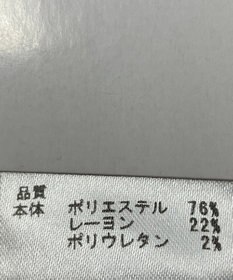 品質
本体 ポリエステル 76%
レーヨン 22%
ポリウレタン 2%